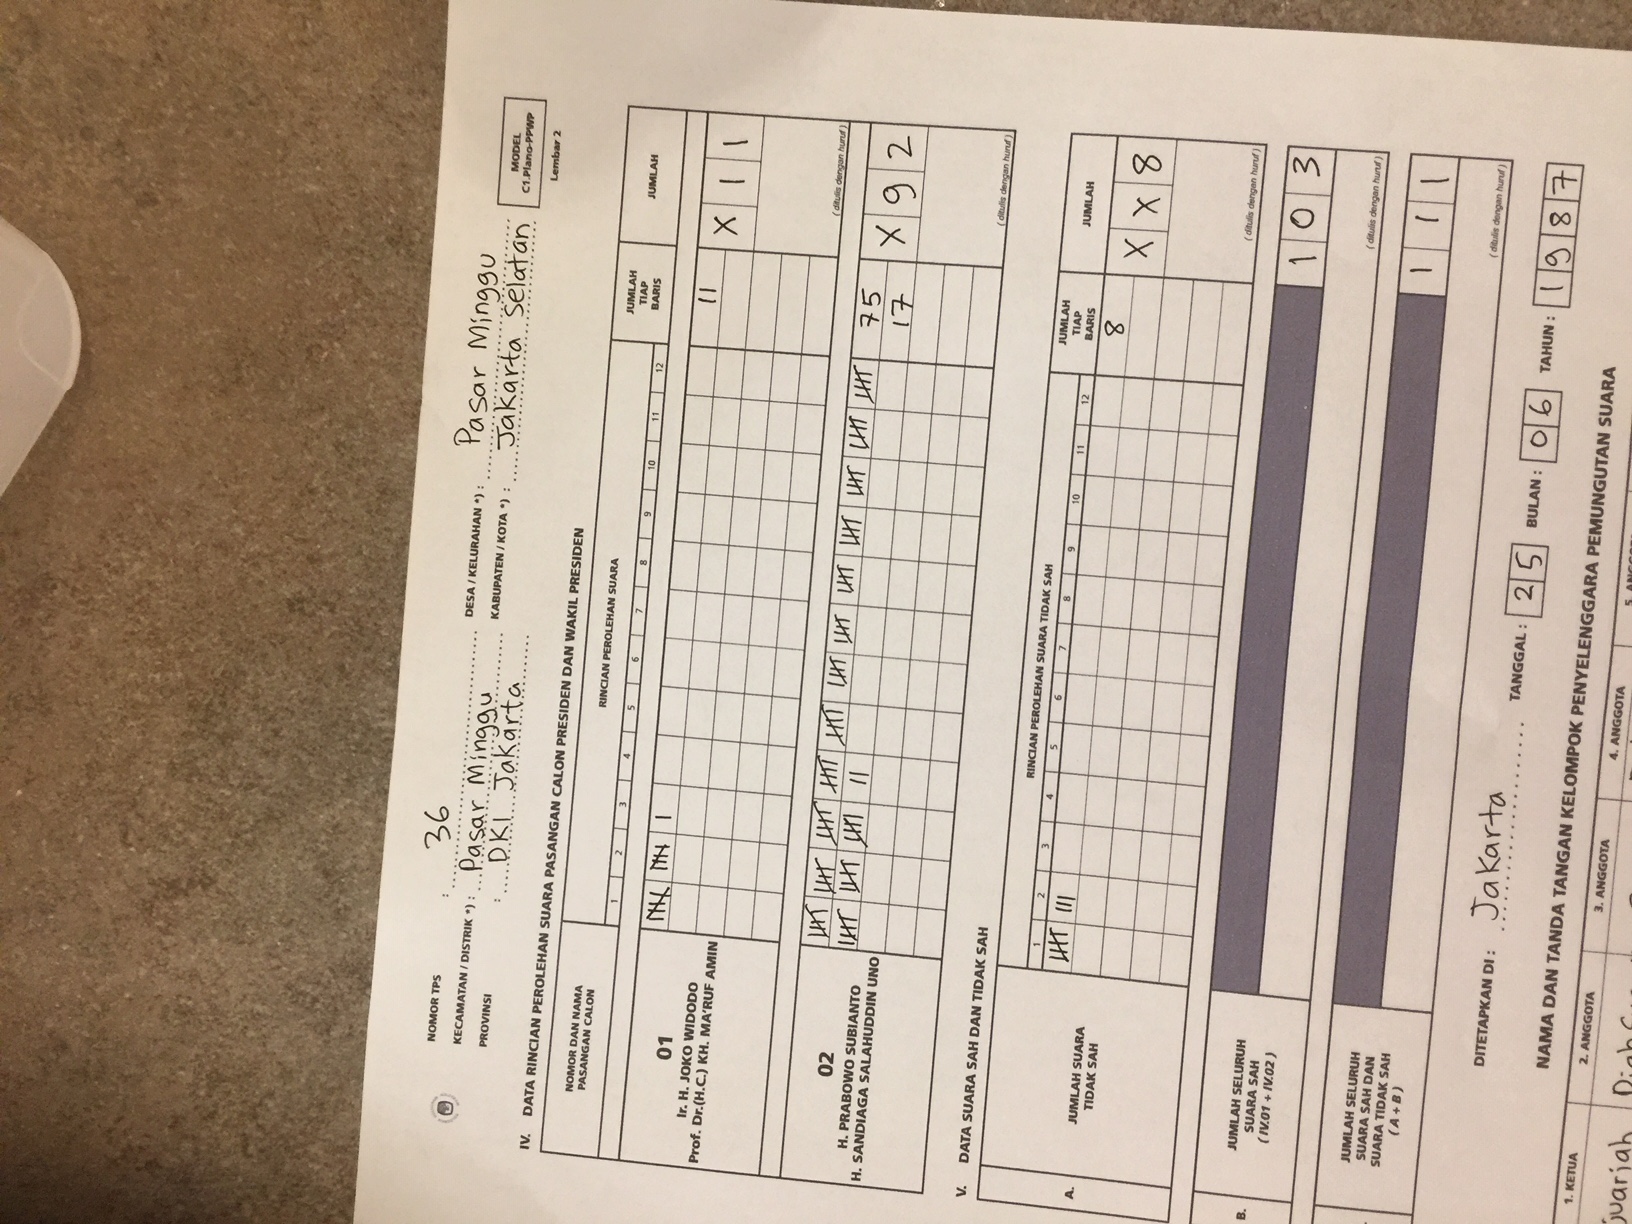 NOMOR TPS : 36
KECAMATAN / DISTRIK *) : Pasar Minggu
PROVINSI : DKI Jakarta
DESA / KELURAHAN *) : Pasar Minggu
KABUPATEN / KOTA *) : Jakarta Selatan
MODEL
C1.Plano-PPWP
Lembar 2
IV. DATA RINCIAN PEROLEHAN SUARA PASANGAN CALON PRESIDEN DAN WAKIL PRESIDEN
NOMOR DAN NAMA
PASANGAN CALON
RINCIAN PEROLEHAN SUARA
1 2 3 4 5 6 7 8 9 10 11 12
JUMLAH
TIAP
BARIS
JUMLAH
01
Ir. H. JOKO WIDODO
Prof. Dr.(H.C.) KH. MA'RUF AMIN
11
X 1 1
( ditulis dengan huruf )
02
H. PRABOWO SUBIANTO
H. SANDIAGA SALAHUDDIN UNO
75
17
X 9 2
( ditulis dengan huruf )
V. DATA SUARA SAH DAN TIDAK SAH
A.
JUMLAH SUARA
TIDAK SAH
RINCIAN PEROLEHAN SUARA TIDAK SAH
1 2 3 4 5 6 7 8 9 10 11 12
JUMLAH
TIAP
BARIS
JUMLAH
8
X X 8
( ditulis dengan huruf )
B.
JUMLAH SELURUH
SUARA SAH
( IV.01 + IV.02 )
1 0 3
( ditulis dengan huruf )
JUMLAH SELURUH
SUARA SAH DAN
SUARA TIDAK SAH
( A + B )
1 1 1
( ditulis dengan huruf )
DITETAPKAN DI : Jakarta
TANGGAL : 25 BULAN : 06 TAHUN : 1987
NAMA DAN TANDA TANGAN KELOMPOK PENYELENGGARA PEMUNGUTAN SUARA
1. KETUA
2. ANGGOTA
3. ANGGOTA
4. ANGGOTA